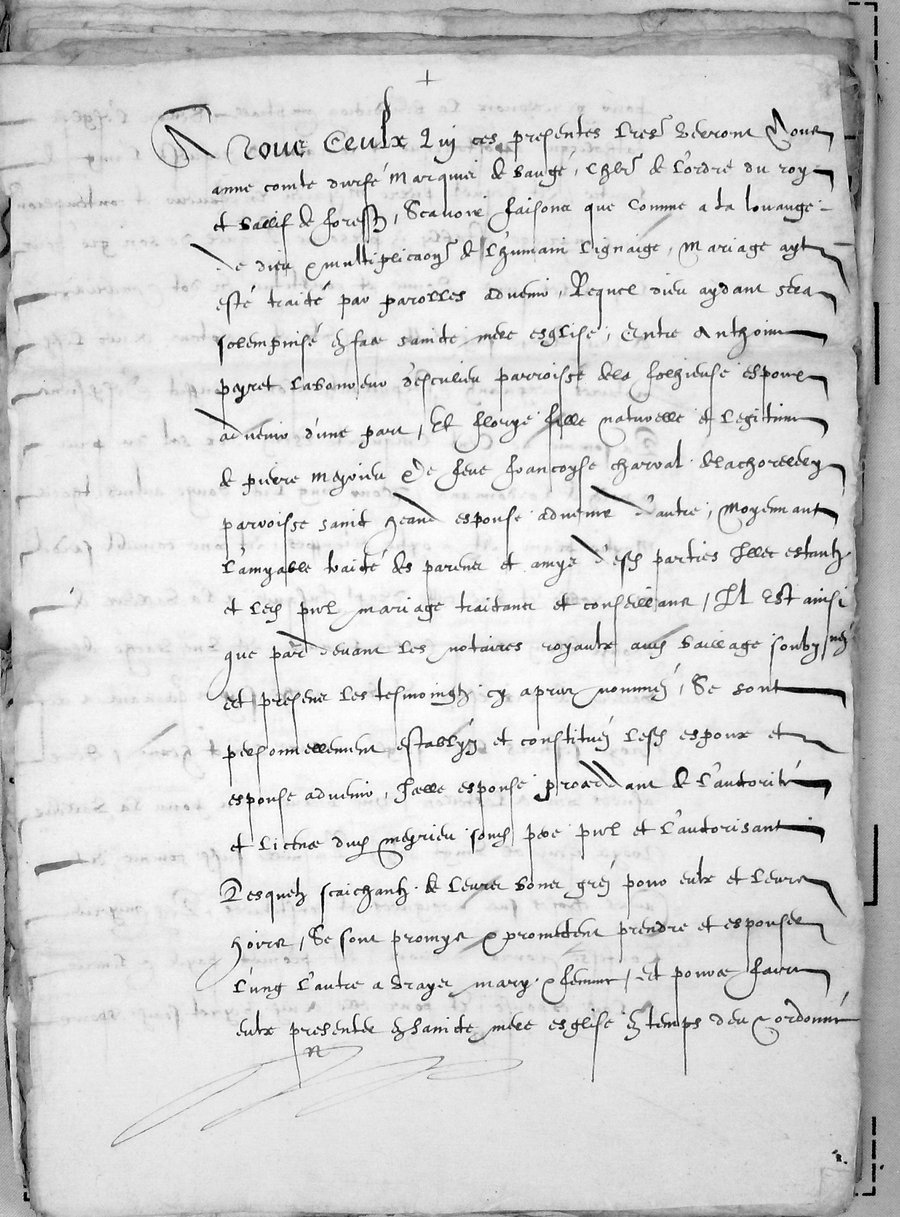 A Tous Ceulx Qui ces presentes lres verront Nous
anne comte durfé Marquis de baugé, Chlr de L'ordre du roy
et ballif de forestz, Scavoir faisons que comme a la louange
de dieu & multiplicaon de L'humain Lignaige, Mariage ayt
esté traité par parolles advenir, Lequel dieu aydant sera
solempnisé en face saincte mere esglise, Entre Anthoine
peyret Laboureur d'esculieu parroisse de la folhieuse espoux
advenir d'une part, Et fille naturelle et Legitime
de pierre meyrieu & de feue francoyse charval
parroisse sainct Jean espouse advenir d'autre, Moyennant
L'amyable traité des parens et amys desd parties Illec estantz
et led pnt mariage traitans et conseillans, Il Est ainsi
que par devant les notaires royaulx aud bailliage soubzsignés
et presens Les tesmoingtz cy apres nommés, Se sont
personnellement establys et constitués Lesd espoux et
espouse advenir, Icelle espouse procedant de L'autorité
et licence dud meyrieu sond pere pnt et L'autorisant
Lesquelz scaichantz de Leurs bons grés pour eulx et Leurs
hoirs, Se sont promys & promettent prendre et espouser
L'ung L'autre a vrayes mary & femme, et pour ce faire
eulx presenter en saincte mere esglise en temps deu & ordonné